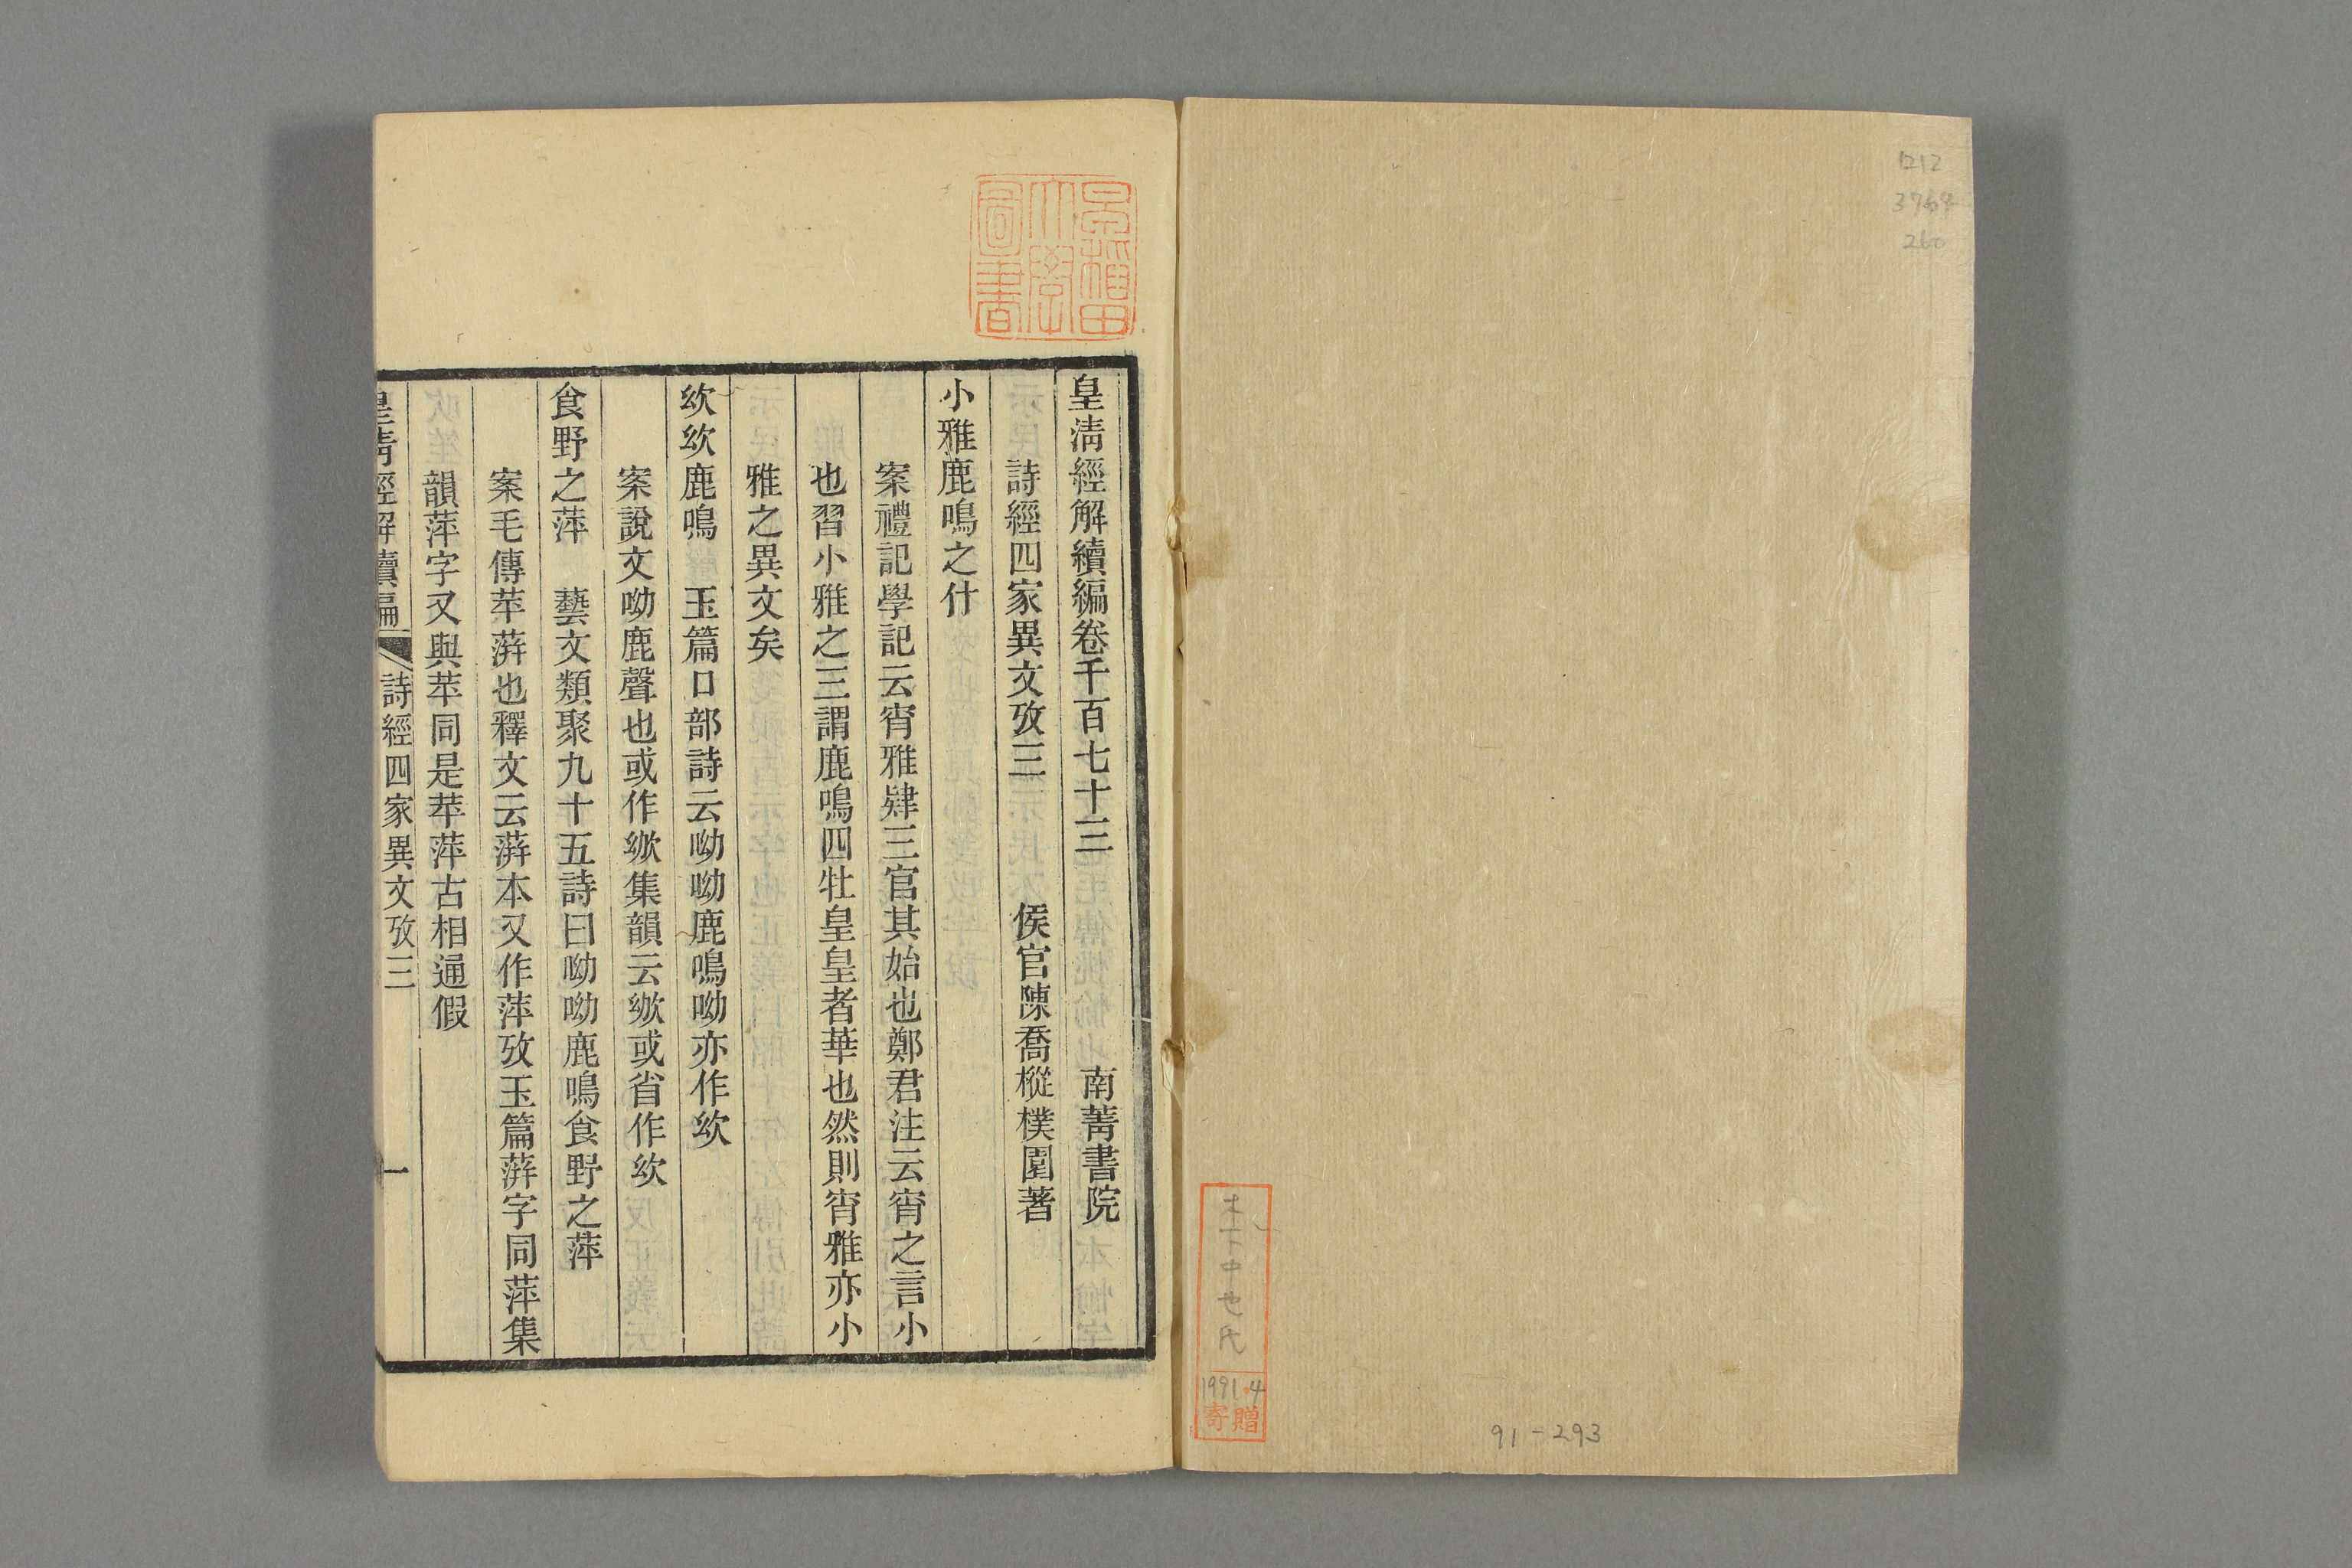 1212
3769
260
91-293
1991.4
寄贈
早稲田大學圖書
皇清經解續編卷千百七十三 南菁書院
詩經四家異文攷三 侯官陳喬樅樸園著
小雅鹿鳴之什
案禮記學記云宵雅肄三官其始也鄭君注云宵之言小
也習小雅之三謂鹿鳴四牡皇皇者華也然則宵雅亦小
雅之異文矣
欸欸鹿鳴 玉篇口部詩云呦呦鹿鳴呦亦作欸
案說文呦鹿聲也或作㕭集韻云㕭或省作欸
食野之萍 藝文類聚九十五詩曰呦呦鹿鳴食野之萍
案毛傳苹蓱也釋文云蓱本又作萍攷玉篇蓱字同萍集
韻萍字又與苹同是苹萍古相通假
皇清經解續編 詩經四家異文攷三 一